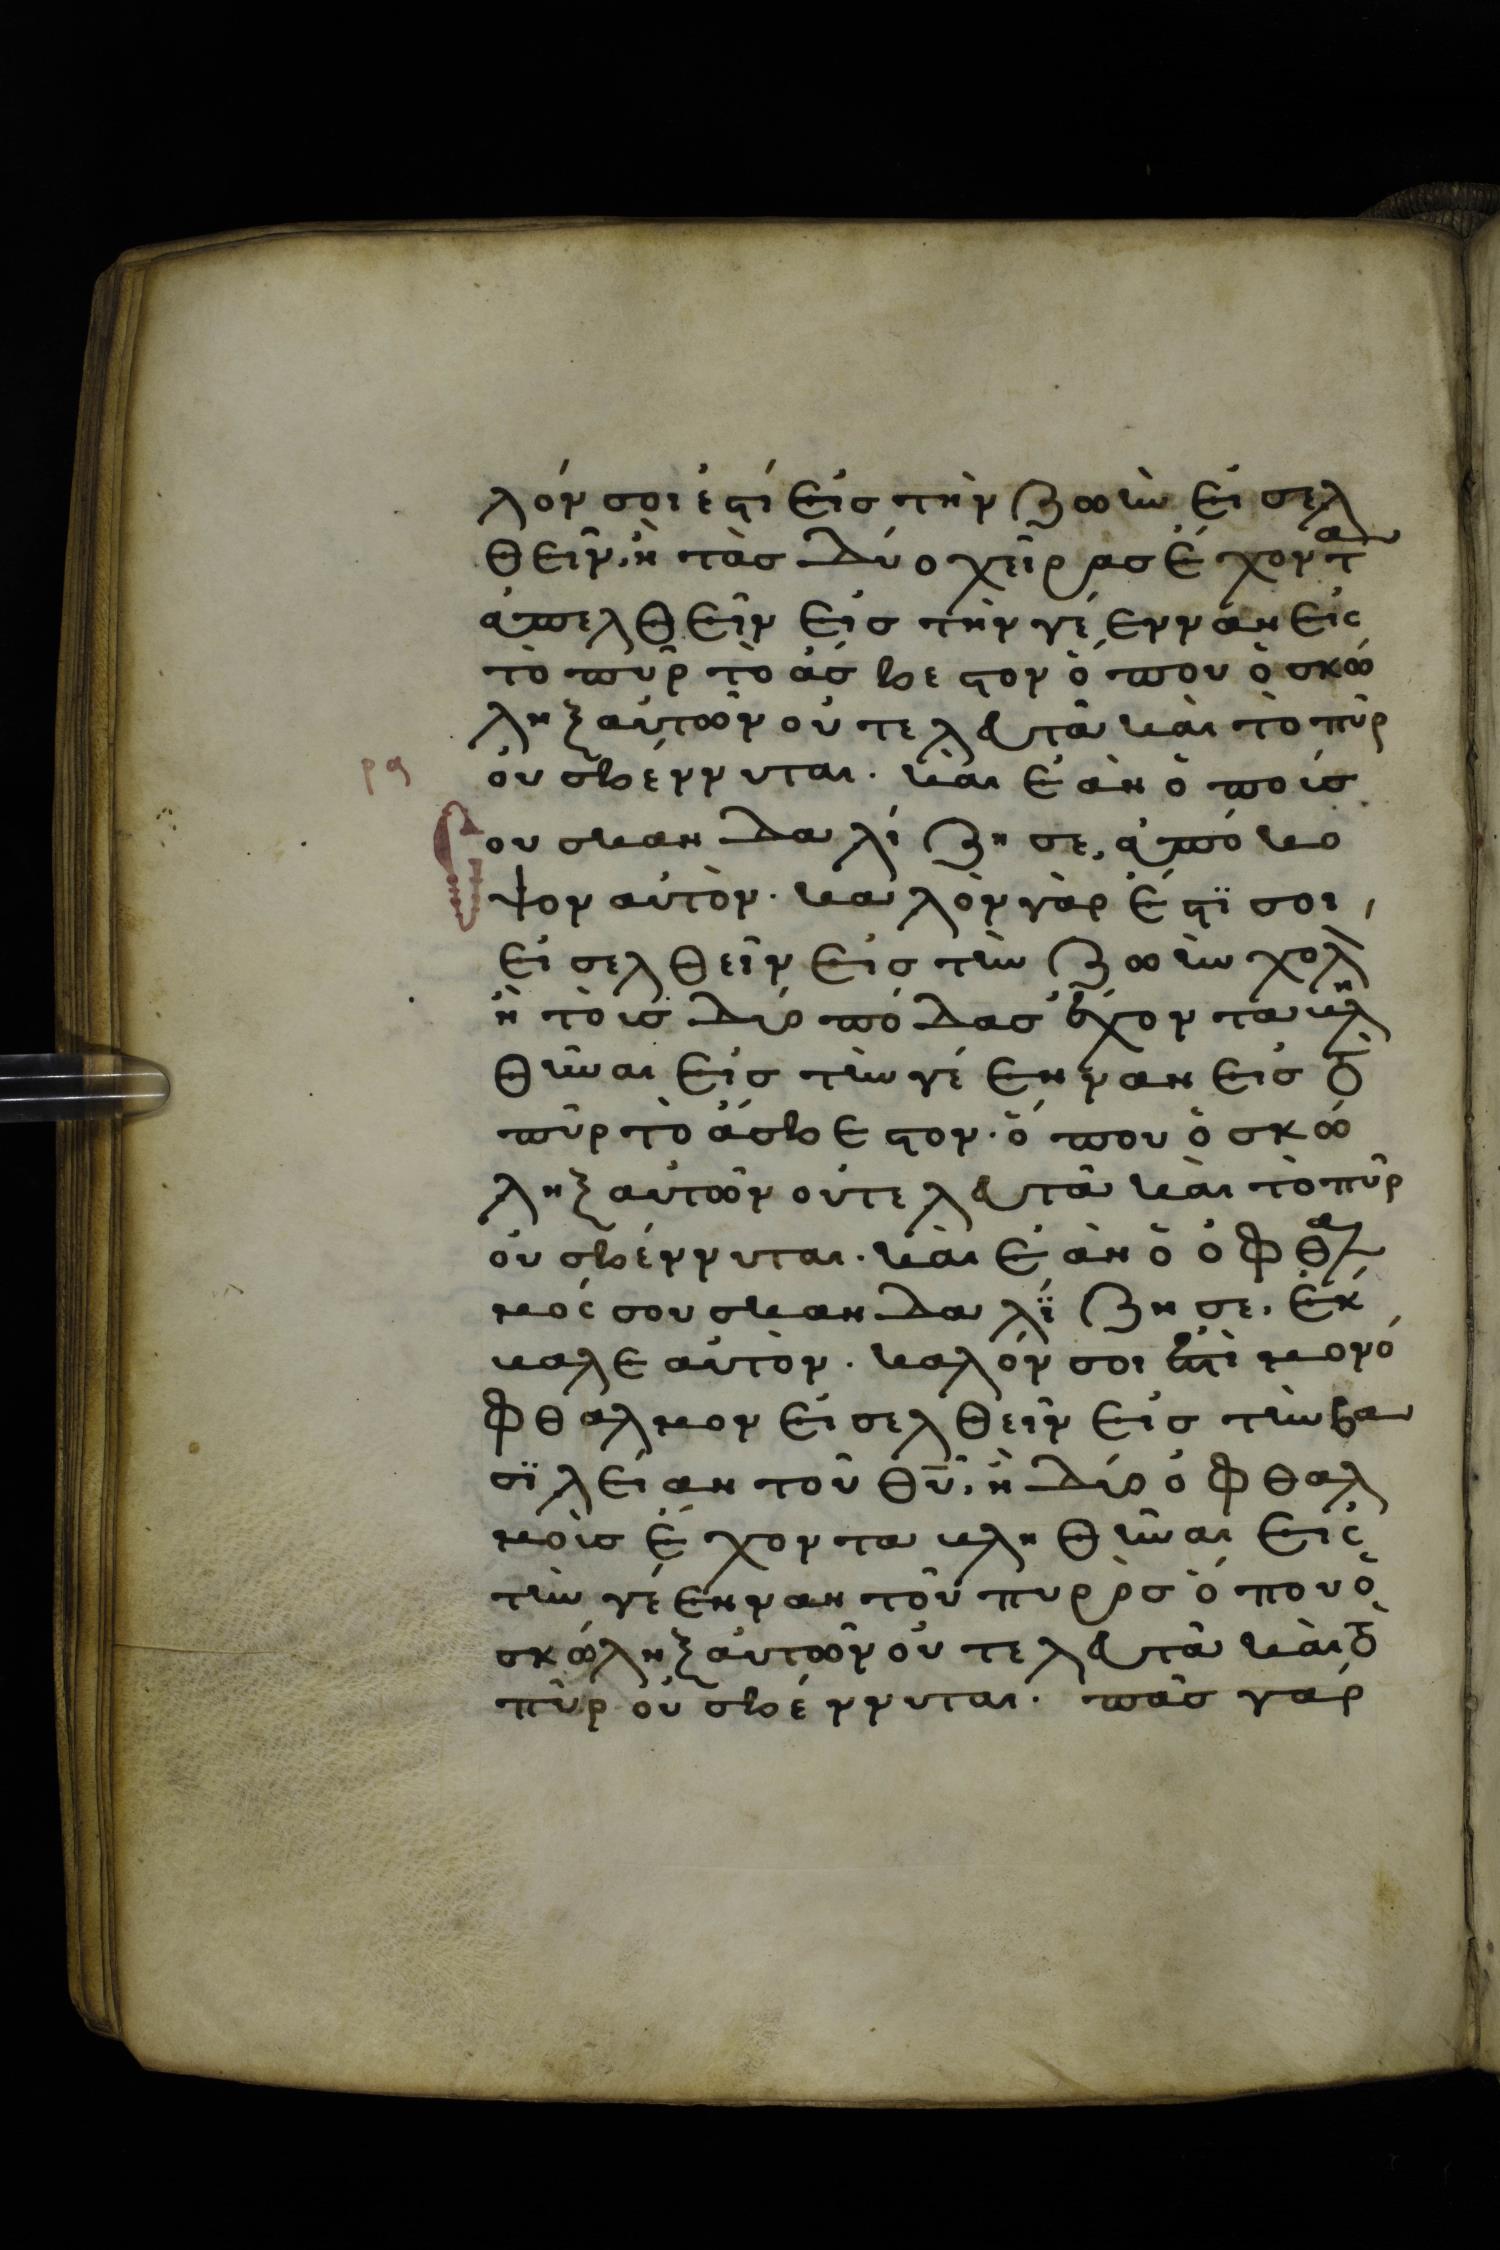 λόν σοι ἐστί εἰς τὴν ζωὴν εἰσελ
θεῖν, ἢ τὰς δύο χεῖρας ἔχοντα
ἀπελθεῖν εἰς τὴν γέενναν εἰς
τὸ πῦρ τὸ ἄσβεστον ὅπου ὁ σκώ
ληξ αὐτῶν οὐ τελευτᾶ καὶ τὸ πῦρ
ρα
οὐ σβέννυται. καὶ ἐὰν ὁ ποῦσ
σου σκανδαλίζη σε, ἀπόκο
ψον αὐτὸν. καλὸν γὰρ ἐστϊ σοι,
εἰσελθεῖν εἰς τὴν ζωὴν χολὸ
ἢ τοὺς δύο πόδας ἔχοντα κλη
θῆναι εἰς τὴν γέενναν εἰς τὸ
πῦρ τὸ ἄσβεστον. ὅπου ὁ σκώ
ληξ αὐτῶν οὐ τελευτᾶ καὶ τὸ πῦρ
οὐ σβέννυται. καὶ ἐὰν ὁ ὀφθαλ
μός σου σκανδαλϊζη σε, ἔκ
βαλε αὐτὸν. καλόν σοι ἐστὶ μονό
φθαλμον εἰσελθεῖν εἰς τὴν βα
σϊλείαν τοῦ θυ̅, ἢ δύο ὀφθαλ
μοὺς ἔχοντα κληθῆναι εἰς
τὴν γέενναν τοῦ πυρὸς ὅπου ὁ
σκώληξ αὐτῶν οὐ τελευτᾶ καὶ τὸ
πῦρ οὐ σβέννυται. πᾶς γὰρ